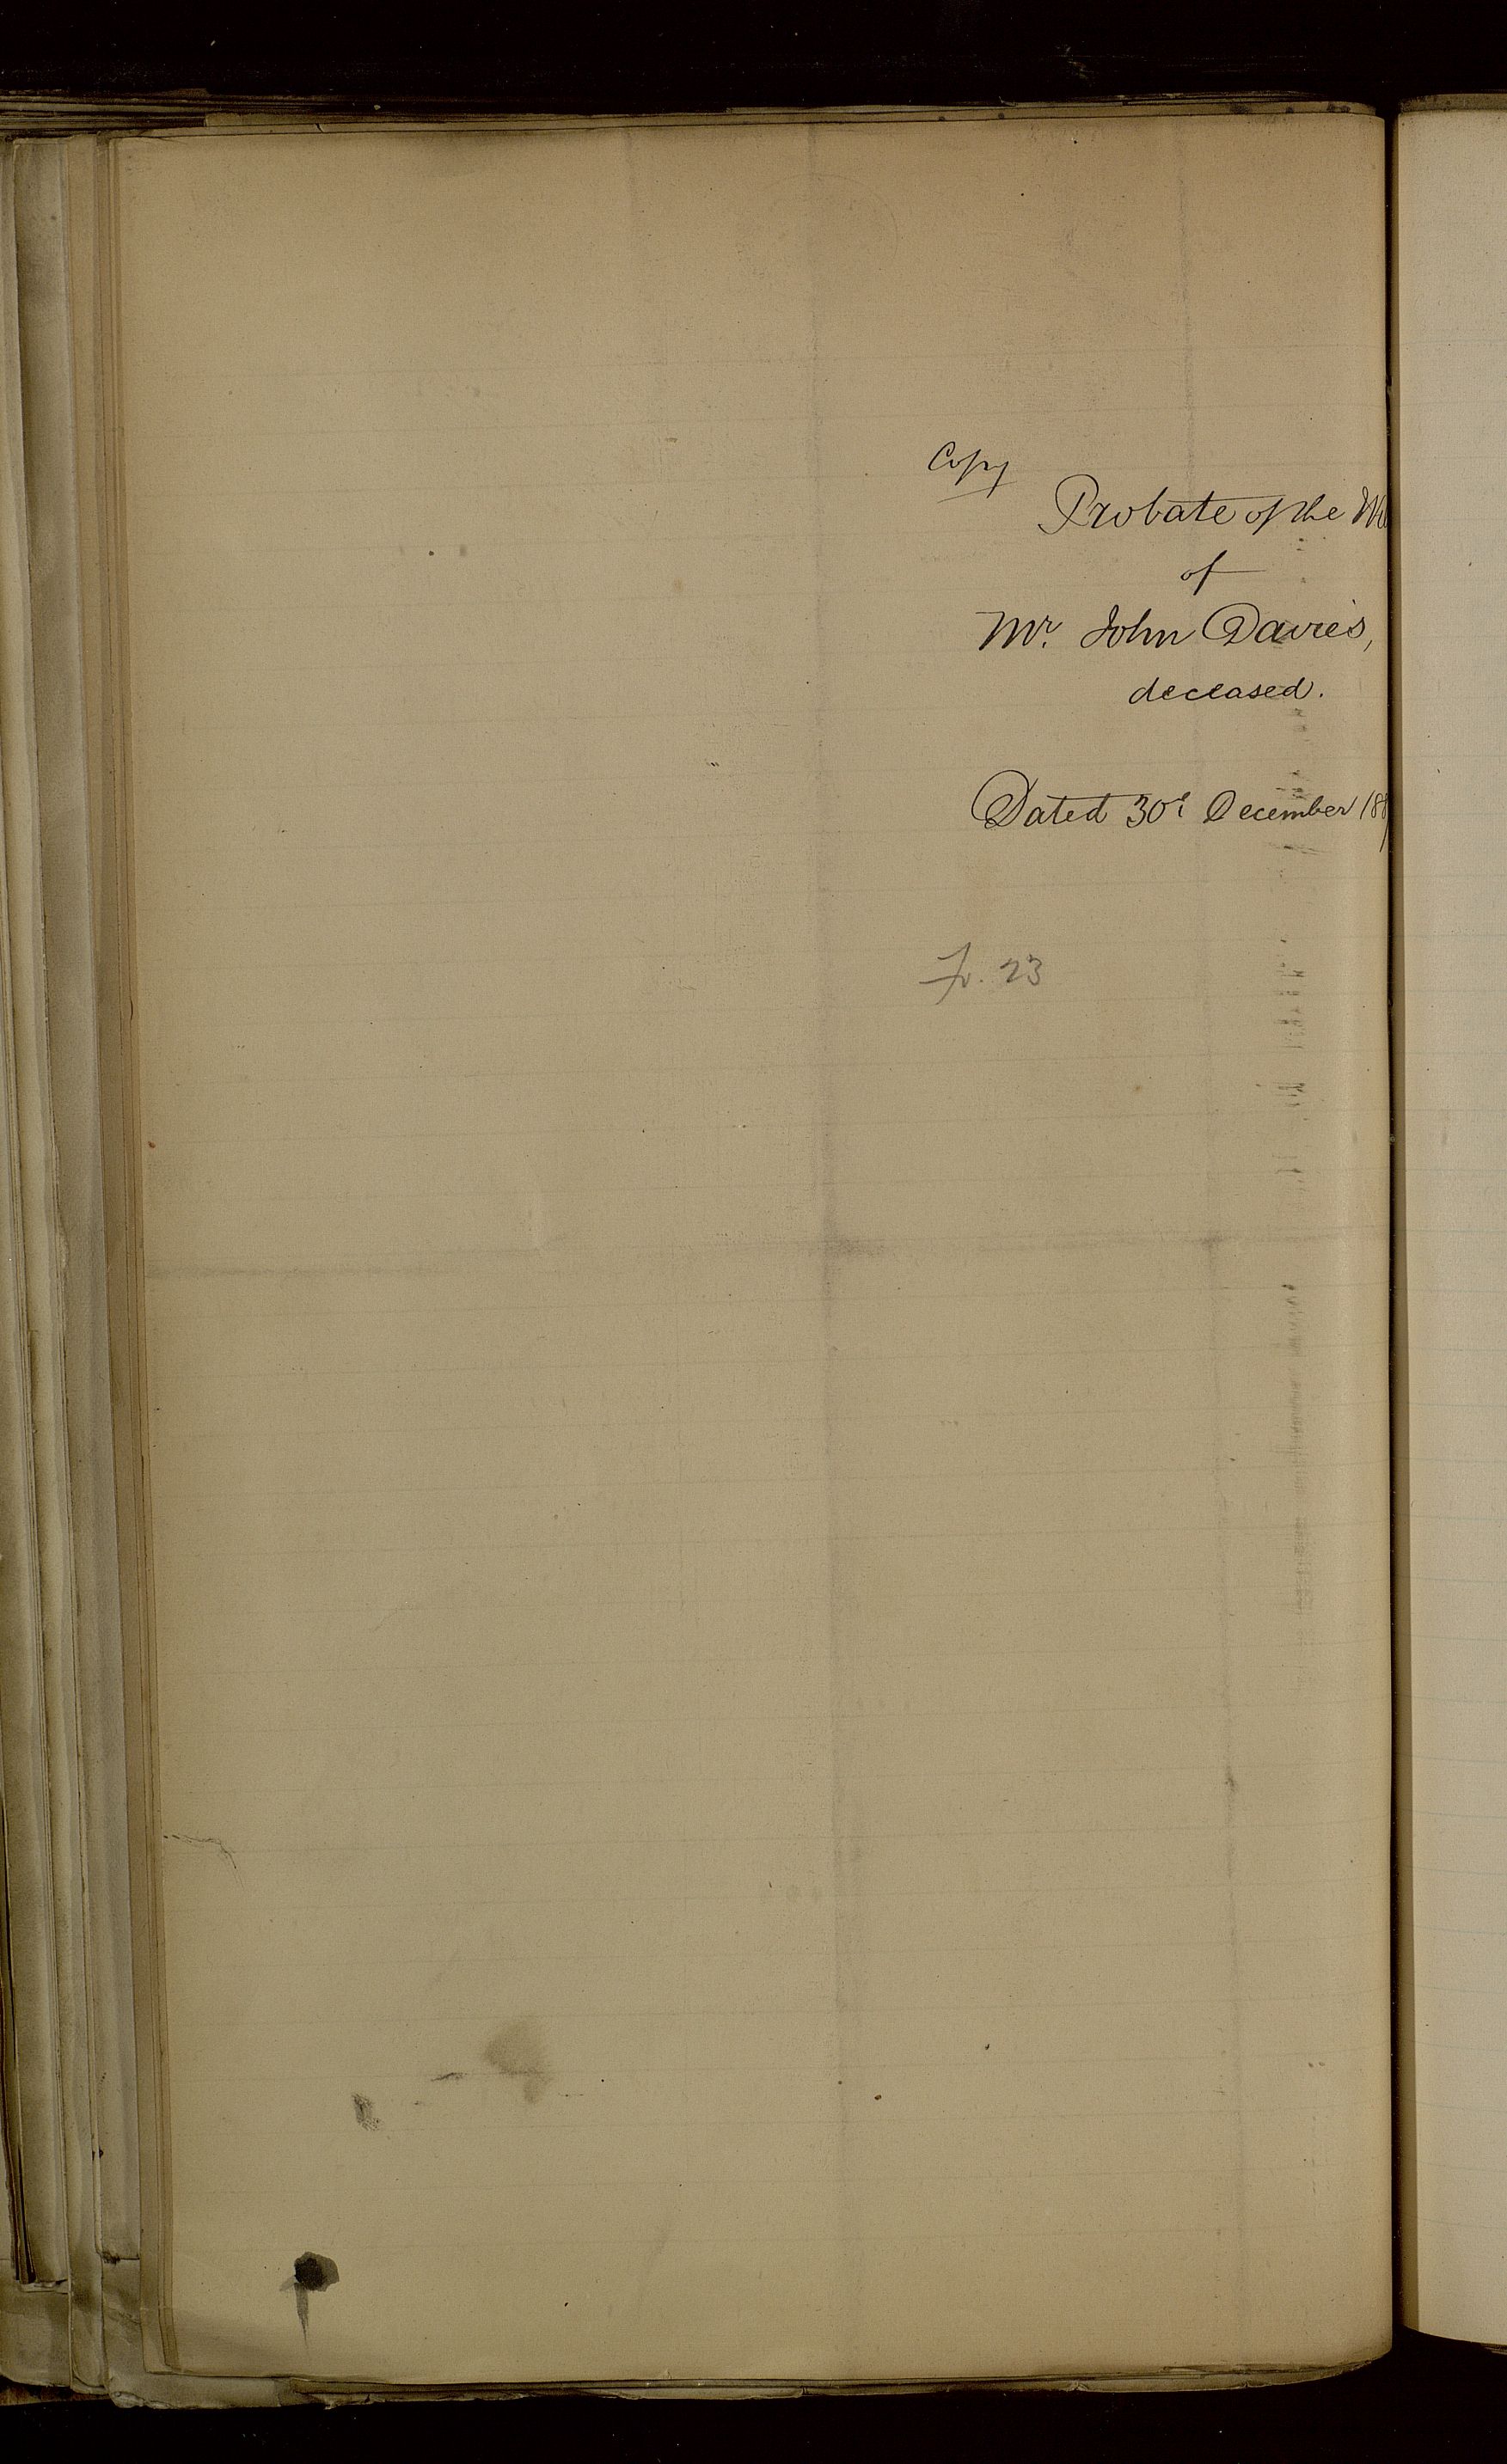 Copy
Probate of the
of
Mr. John Davies,
deceased.
Dated 30th December 188
Fo. 23